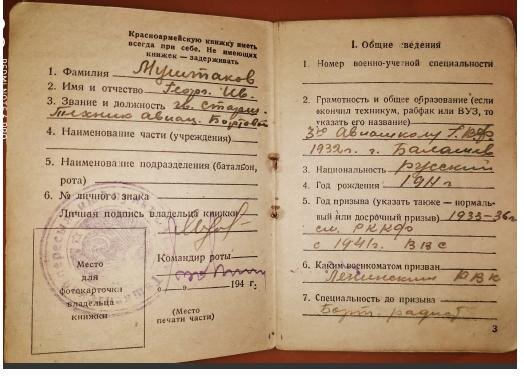 Красноармейскую книжку иметь
всегда при себе. Не имеющих
книжек — задерживать
1. Фамилия Муштаков
2. Имя и отчество Георг. Ив.
3. Звание и должность гв. старш.
техник авиац. Бортовой
4. Наименование части (учреждения)
5. Наименование подразделения (баталион,
рота)
6. № личного знака
Личная подпись владельца книжки
Командир роты
" " 194 г.
Место
для
фотокарточки
владельца
книжки
(Место
печати части)
I. Общие сведения
1. Номер военно-учетной специальности
2. Грамотность и общее образование (если
окончил техникум, рабфак или ВУЗ, то
указать его название)
Авиашколу Г.ВФ
1932г. г. Балашов
3. Национальность русский
4. Год рождения 1911г
5. Год призыва (указать также — нормаль-
ный или досрочный призыв) 1933-36г
РККФ
с 1941г. ВВС
6. Каким военкоматом призван
Ленинским РВК
7. Специальность до призыва
Борт. радист
3